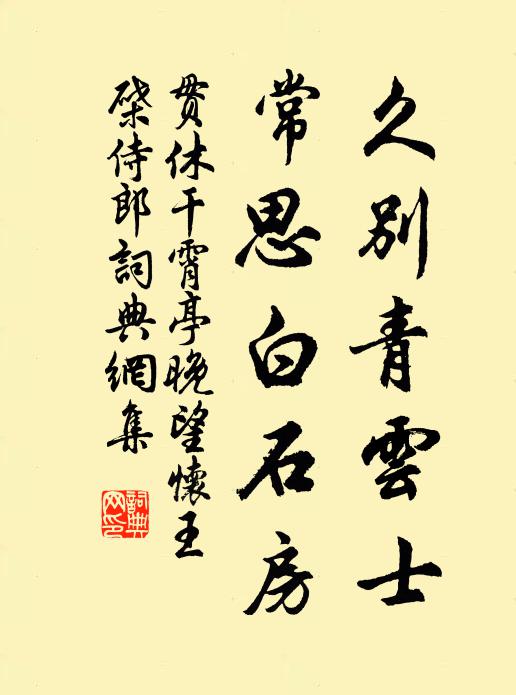 久別青雲士
常思白石房
貫休干霄亭晚望懷王
棨侍郎詞典網集
詞典
网印